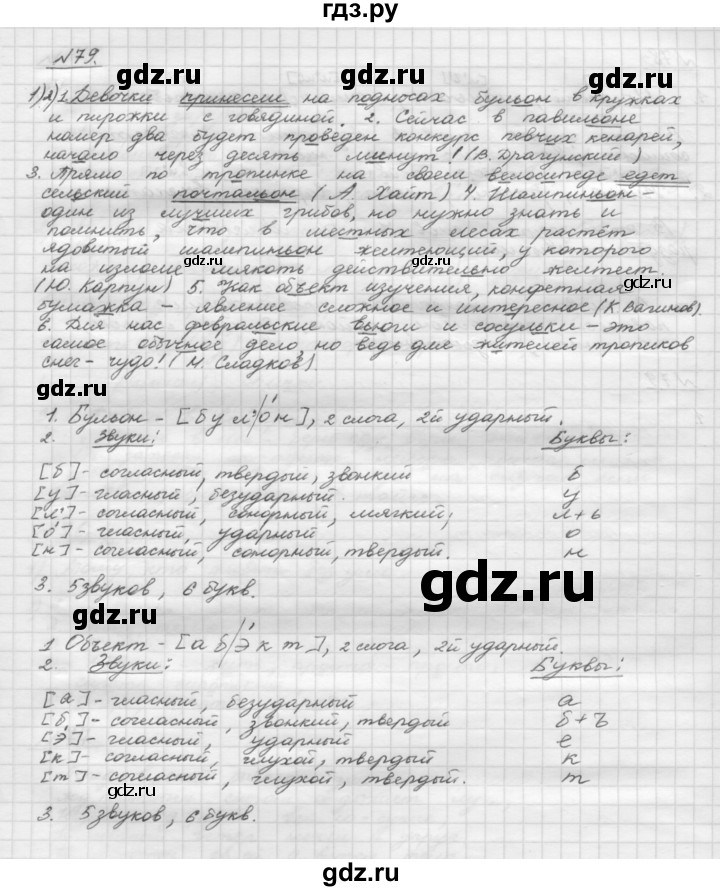 гдз.ру
№79.
gdz.ru gdz.ru
1)2)1. Девочки принесли на подносах бульон в кружках
и пирожки с говядиной. 2. Сейчас в павильоне
номер два будет проведен конкурс певчих кенарей,
начало через десять минут! (В. Драгунский)
gdz.ru gdz.ru
3. Прямо по тропинке на своем велосипеде едет
сельский почтальон (А. Хайт) 4. Шампиньон -
один из лучших грибов, но нужно знать и
помнить, что в местных лесах растёт
ядовитый шампиньон желтеющий, у которого
на изломе мякоть действительно желтеет.
(Ю. Карпун) 5. Как объект изучения, конфетная
бумажка - явление сложное и интересное (К. Вагинов).
6. Для нас февральские вьюги и сосульки - это
самое обычное дело, но ведь для жителей тропиков
снег - чудо! (Н. Сладков)
gdz.ru gdz.ru
1. Бульон - [бул'/о́н], 2 слога, 2й ударный.
2. Звуки: Буквы:
[б] - согласный, твердый, звонкий б
[у] - гласный, безударный. у
[л'] - согласный, сонорный, мягкий; л+ь
[о́] - гласный, ударный о
[н] - согласный, сонорный, твердый. н
gdz.ru
3. 5 звуков, 6 букв.
gdz.ru
1 Объект - [аб/э́кт], 2 слога, 2й ударный.
2. Звуки: Буквы:
[а] - гласный, безударный а
[б] - согласный, звонкий, твердый б+ъ
[э́] - гласный, ударный е
[к] - согласный, глухой, твердый к
[т] - согласный, глухой, твердый. т
3. 5 звуков, 6 букв.
gdz.ru gdz.ru
gdz.ru